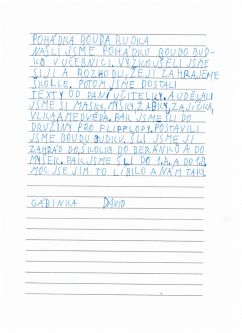 POHÁDKA BOUDA BUDKA
NAŠLI JSME POHÁDKU BOUDO BUD-
KO V UČEBNICI. VYZKOUŠELI JSME
SI JI A ROZHODLI, ŽE JI ZAHRAJEME
ŠKOLCE. POTOM JSME DOSTALI
TEXTY OD PANÍ UČITELKY. A UDĚLALI
JSME SI MASKY, MYŠKY, ŽABKY, ZAJÍČKA,
VLKA A MEDVĚDA. PAK JSME ŠLI DO
DRUŽINY PRO FLIPFLOPY. POSTAVILI
JSME BOUDU BUDKU. ŠLI JSME JI
ZAHRÁT DO ŠKOLKY DO BERÁNKŮ A DO
MYŠEK. PAK JSME ŠLI DO 1.A. A DO 1.B.
MOC SE JIM TO LÍBILO A NÁM TAKY.
GÁBINKA DAVID